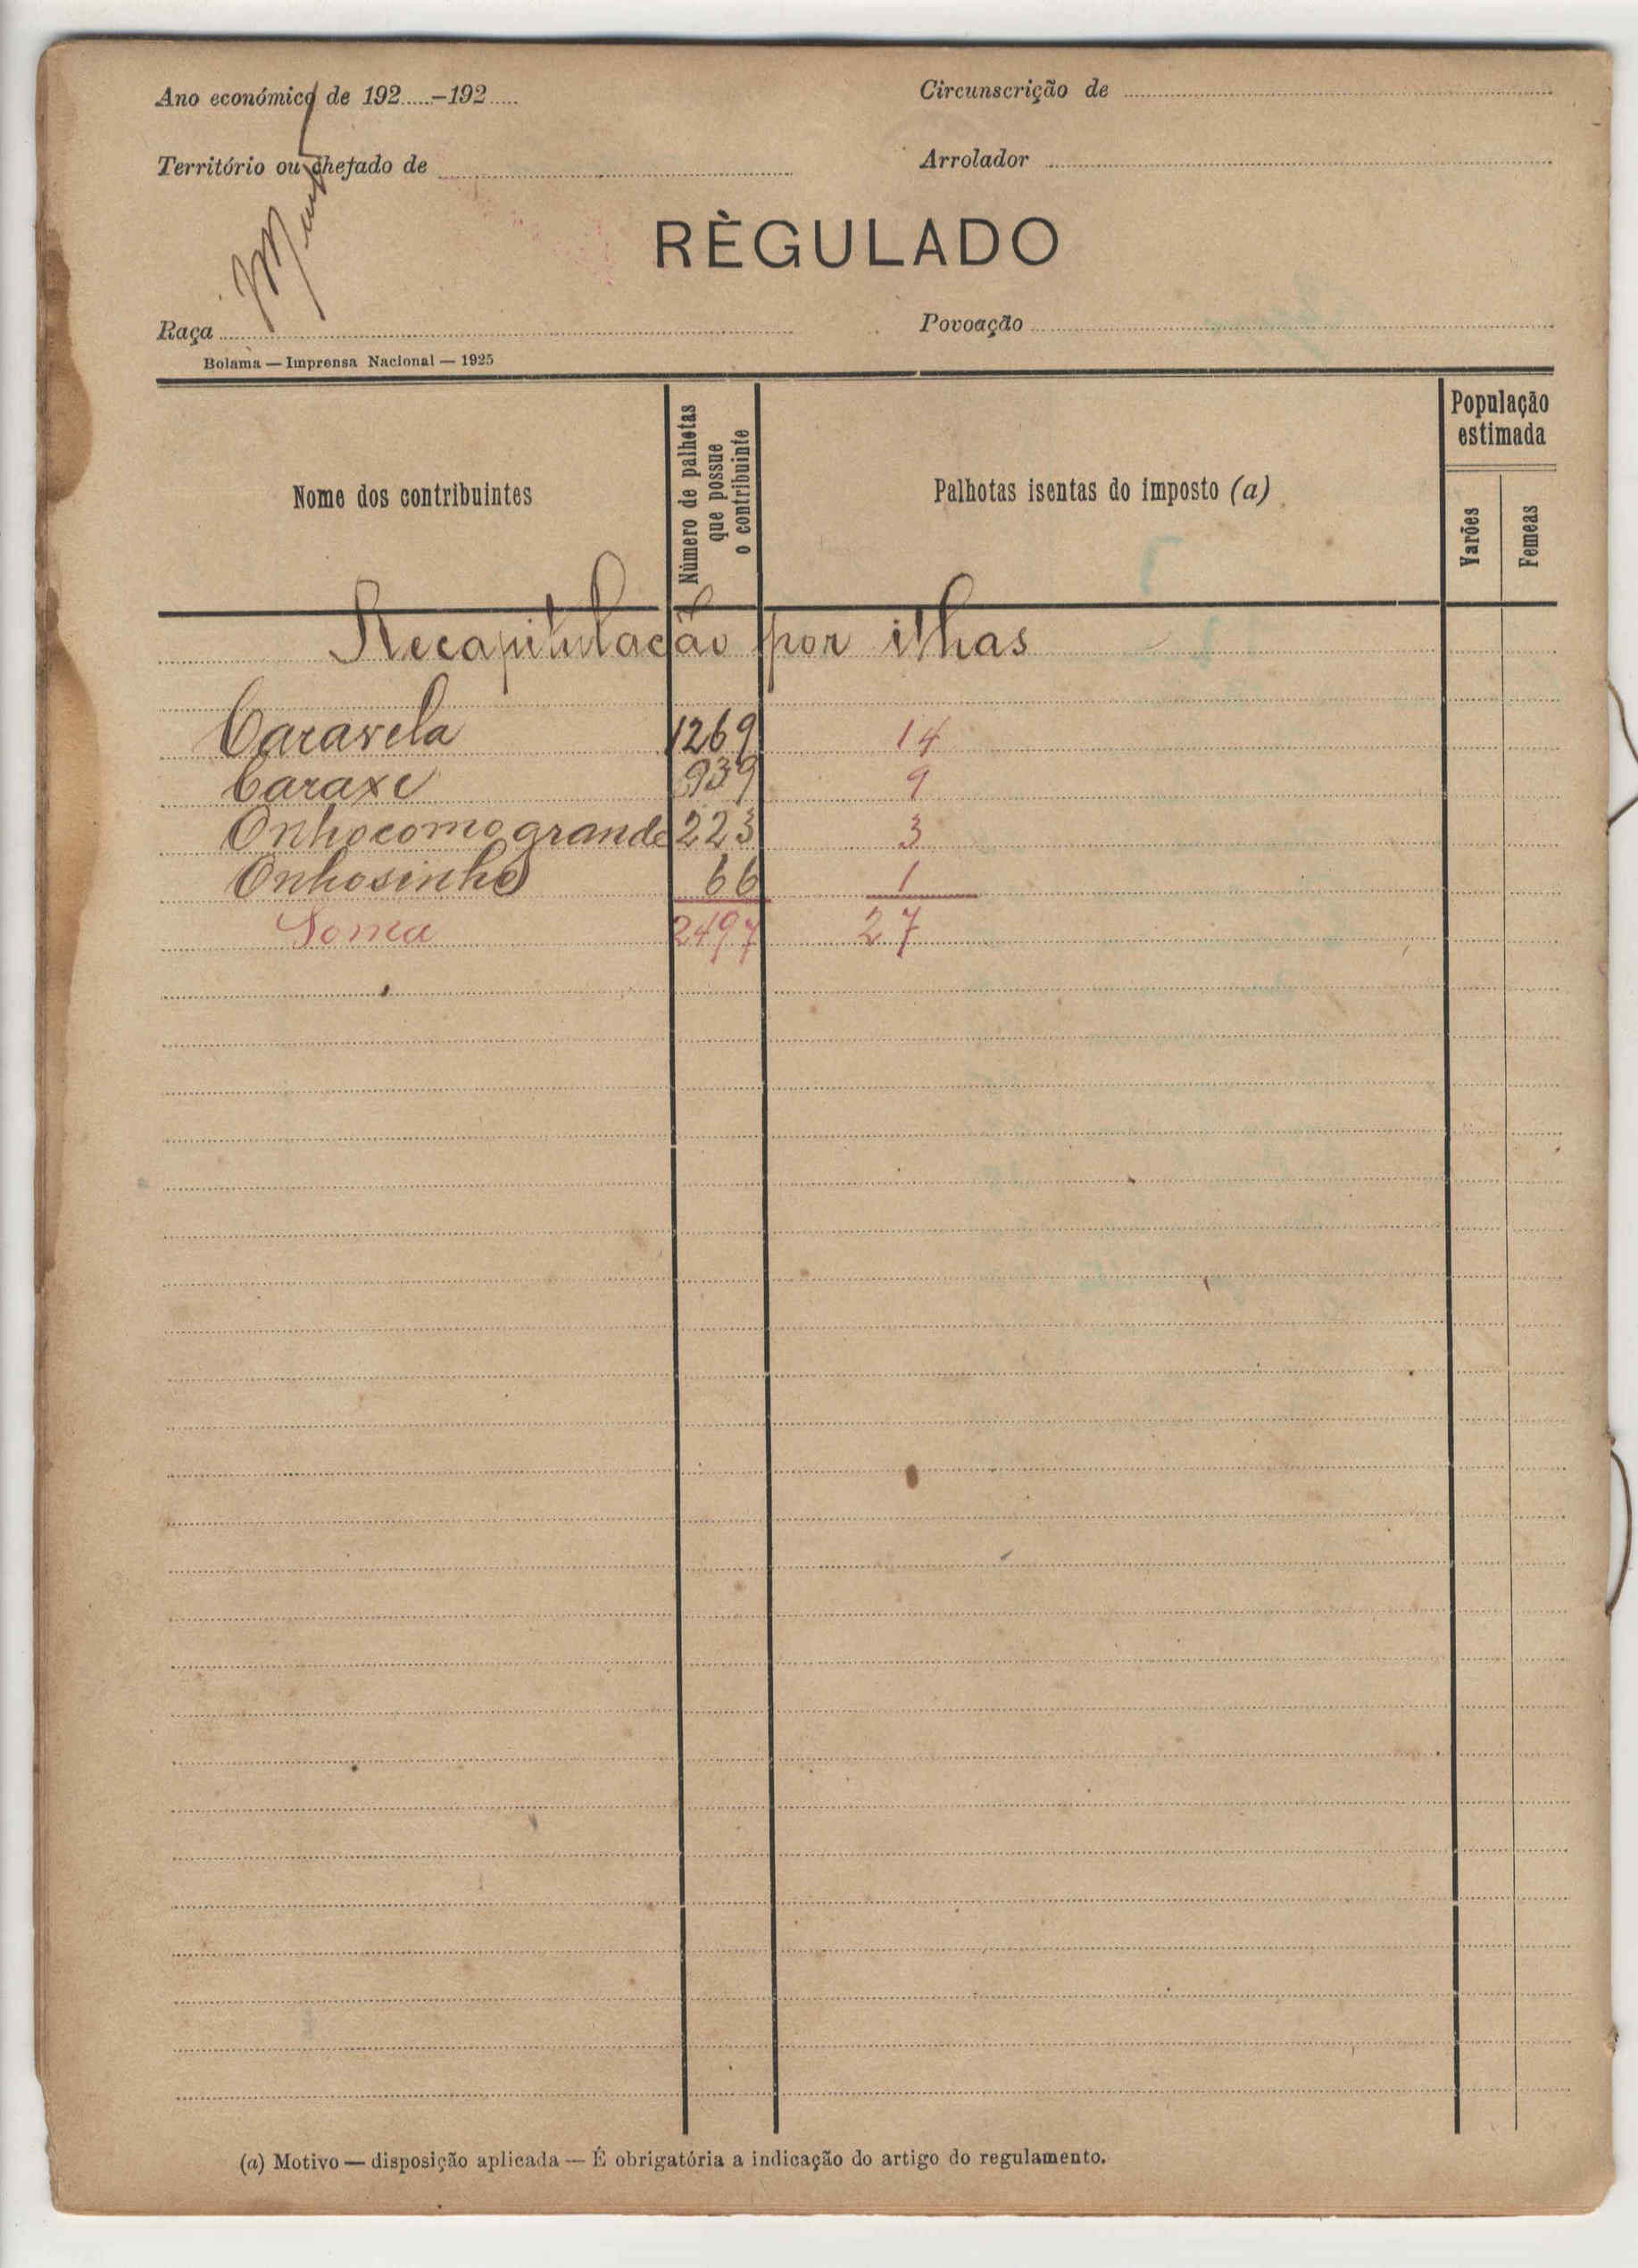 Ano económico de 192.....–192.....
Circunscrição de
Território ou chefado de
Arrolador
RÈGULADO
Raça
Povoação
Bolama — Imprensa Nacional — 1925
Nome dos contribuintes
Número de palhotas que possue o contribuinte
Palhotas isentas do imposto (a)
População estimada
Varões
Femeas
Recapitulação por ilhas
Caravela 1269 14
Caraxe 939 9
Onhocomo grande 223 3
Onhosinho 66 1
Soma 2497 27
(a) Motivo — disposição aplicada — É obrigatória a indicação do artigo do regulamento.